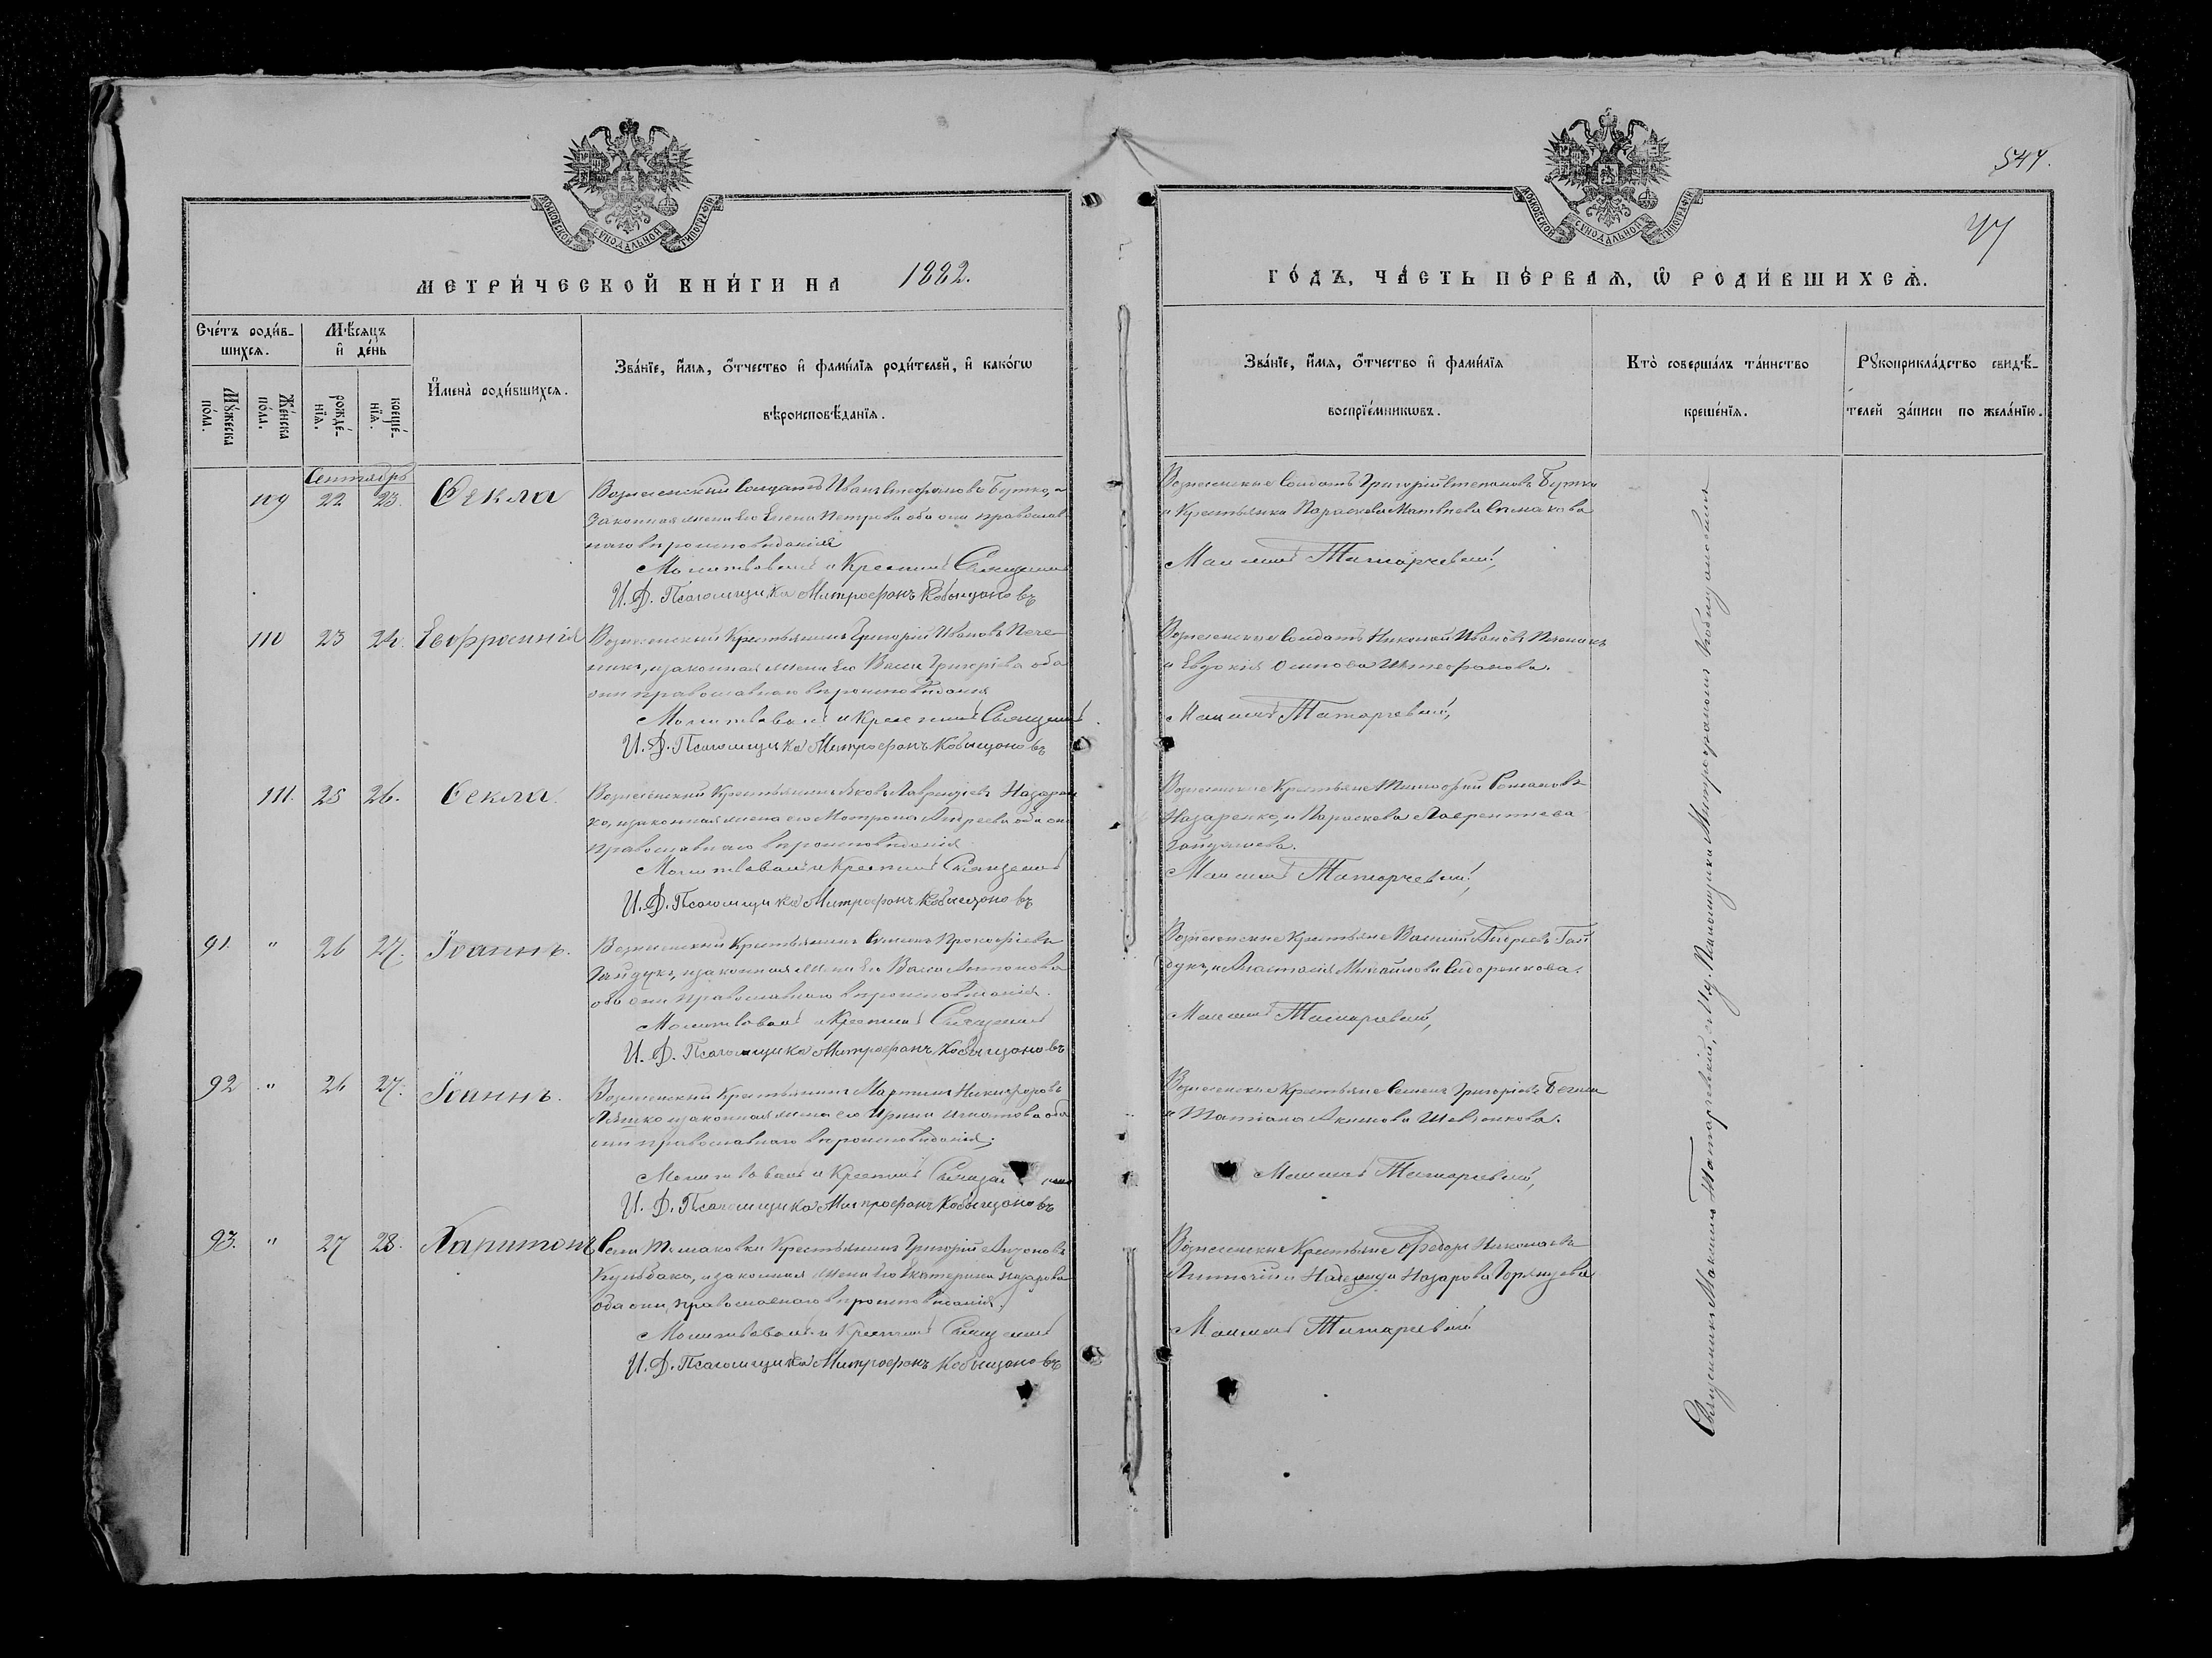 547.
47
МОСКОВСКОЙ СѴНОДАЛЬНОЙ ТИПОГРАФІИ
МОСКОВСКОЙ СѴНОДАЛЬНОЙ ТИПОГРАФІИ
МЕТРИ́ЧЕСКОЙ КНИ́ГИ НА 1882.
ГО́ДЪ, ЧА́СТЬ ПЕ́РВАЯ, Ѡ҆ РОДИ́ВШИХСѦ.
Сче́тъ роди́в-
шихсѧ.
Мꙋ́жеска
по́ла.
Же́нска
по́ла.
Мѣ́сѧцъ
и҆ де́нь
рожде́-
нїѧ.
креще́-
нїѧ.
И҆мена̀ роди́вшихсѧ.
Зва́нїе, и҆́мѧ, ѻ҆́тчество и҆ фами́лїѧ роди́телей, и҆ како́гѡ
вѣроисповѣ́данїѧ.
Зва́нїе, и҆́мѧ, ѻ҆́тчество и҆ фами́лїѧ
воспрїе́мникѡвъ.
Кто̀ соверша́лъ та́инство
креще́нїѧ.
Рꙋкоприкла́дство свидѣ́-
телей за́писи по жела́нїю.
Сентябрь
109 22 23. Ѳекла
Вознесенскій Солдатъ Иванъ Стефановъ Бутко, и
законная жена его Елена Петрова оба они православ-
наго вѣроисповѣданія
Молитвовалъ и Крестилъ Священникъ
И. Д. Псаломщика Митрофанъ Кобыщановъ
Вознесенские Солдатъ Григорій Степановъ Бутко
и Крестьянка Параскева Матвѣева Симакова
Максимъ Татарчевскій,
110 23 24. Евфросинія
Вознесенскій Крестьянинъ Григорій Ивановъ Пече-
никъ, и законная жена его Васса Григоріева оба
они православнаго вѣроисповѣданія
Молитвовалъ и Крестилъ Священникъ
И. Д. Псаломщика Митрофанъ Кобыщановъ
Вознесенские Солдатъ Николай Ивановъ Печеникъ
и Евдокія Осипова Штефанова.
Максимъ Татарчевскій,
111. 25 26. Ѳекла.
Вознесенскій Крестьянинъ Яковъ Лаврентіевъ Назарен
ко, и законная жена его Матрона Андреева оба они
православнаго вѣроисповѣданія
Молитвовалъ и Крестилъ Священникъ
И. Д. Псаломщика Митрофанъ Кобыщановъ
Вознесенские Крестьяне Тимофей Романовъ
Назаренко, и Параскева Лаврентіева
Максимъ Татарчевскій,
91. " 26 27. Іоаннъ.
Вознесенскій Крестьянинъ Симеонъ Прокофіевъ
Гайдукъ, и законная жена его Васса Антонова
оба они православнаго вѣроисповѣданія.
Молитвовалъ и Крестилъ Священникъ
И. Д. Псаломщика Митрофанъ Кобыщановъ
Вознесенские Крестьяне Василій Андреевъ Гай
дукъ, и Анастасія Михайлова Сидоренкова.
Максимъ Татарчевскій,
92 " 26 27. Іоаннъ.
Вознесенскій Крестьянинъ Мартинъ Никифоровъ
Ляшко и законная жена его Ирина Игнатова оба
они православнаго вѣроисповѣданія.
Молитвовалъ и Крестилъ Священникъ
И. Д. Псаломщика Митрофанъ Кобыщановъ
Вознесенские Крестьяне Семенъ Григоріевъ
и Татіана Акимова Шевченкова.
Максимъ Татарчевскій,
93. " 27 28. Харитонъ
Села Томаковки Крестьянинъ Григорій
Кульбака, и законная жена его Екатерина Назарова
оба они православнаго вѣроисповѣданія.
Молитвовалъ и Крестилъ Священникъ
И. Д. Псаломщика Митрофанъ Кобыщановъ
Вознесенские Крестьяне Федоръ Николаевъ
и Надежда Назарова
Максимъ Татарчевскій
Священникъ Максимъ Татарчевскій, съ И. д. Псаломщика Митрофаномъ Кобыщановымъ